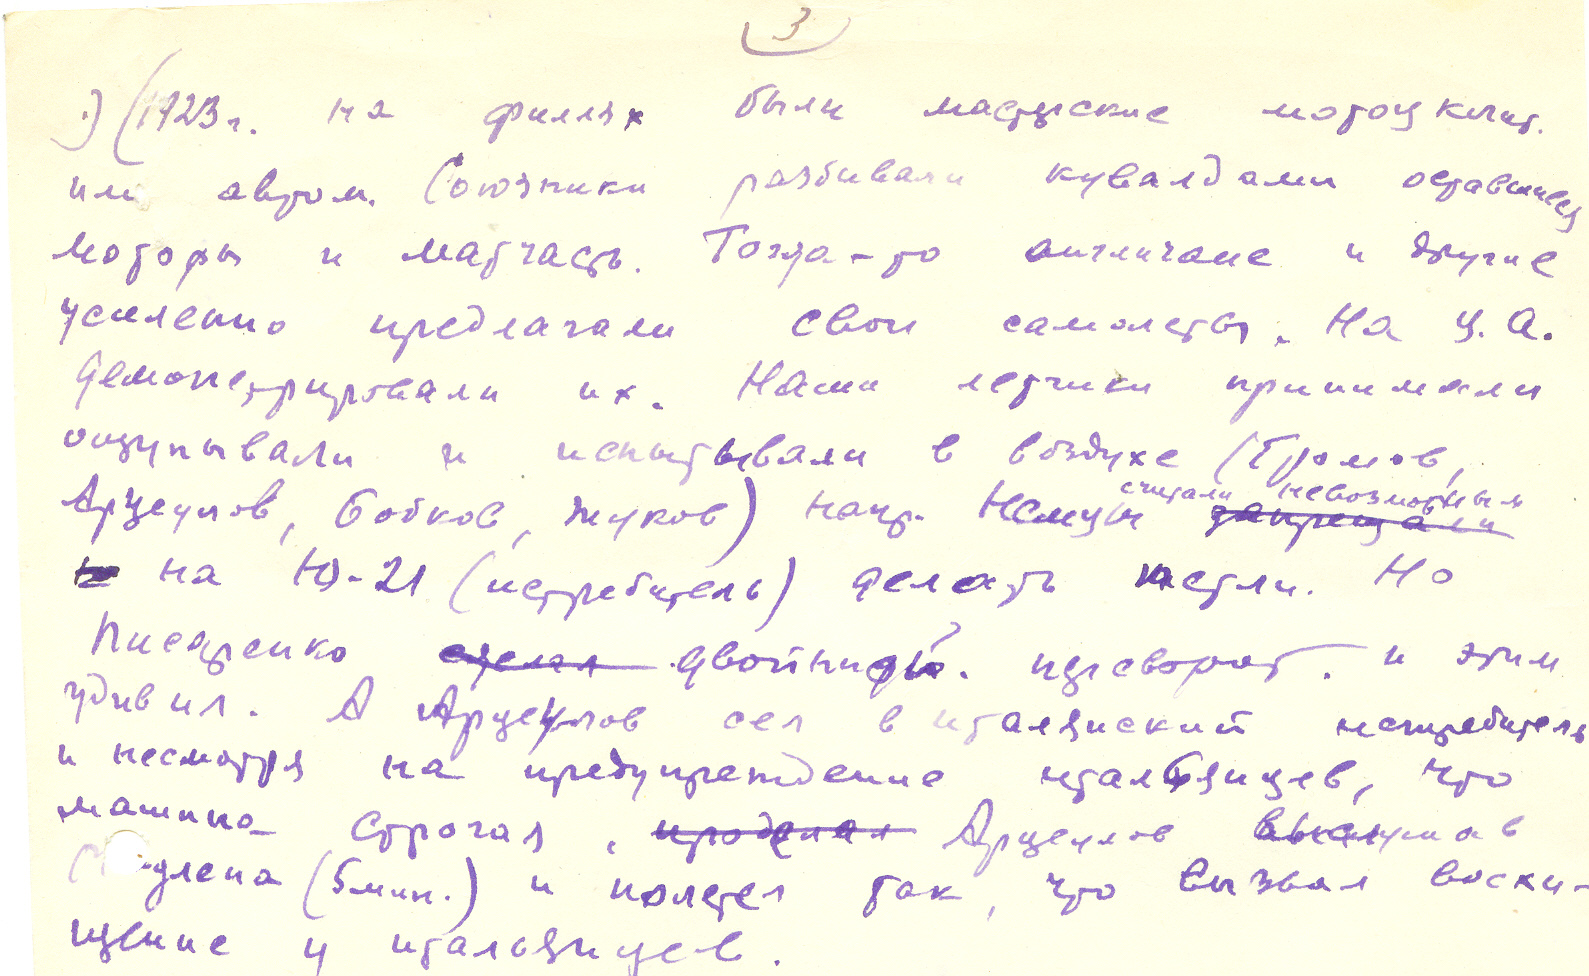 3
(1923 г. на филях были мастерские мотоциклит.
или автом. Союзники разбивали кувалдами оставшиеся
моторы и матчасть. Тогда-то англичане и другие
усиленно предлагали свои самолеты. На Ц. А.
демонстрировали их. Наши летчики принимали
ощупывали и испытывали в воздухе (Громов,
Арцеулов, Бобков, Жуков) напр. Немцы считали невозможным запрещали
на Ю-21 (истребитель) делать петли. Но
Писаренко сделал двойной переворот. и этим
удивил. А Арцеулов сел в италянский истребитель
и несмотря на предупреждение итальянцев, что
машина строгая, проделал Арцеулов выслушав
(5 мин.) и полетел так, что вызвал восхи-
щение у итальянцев.